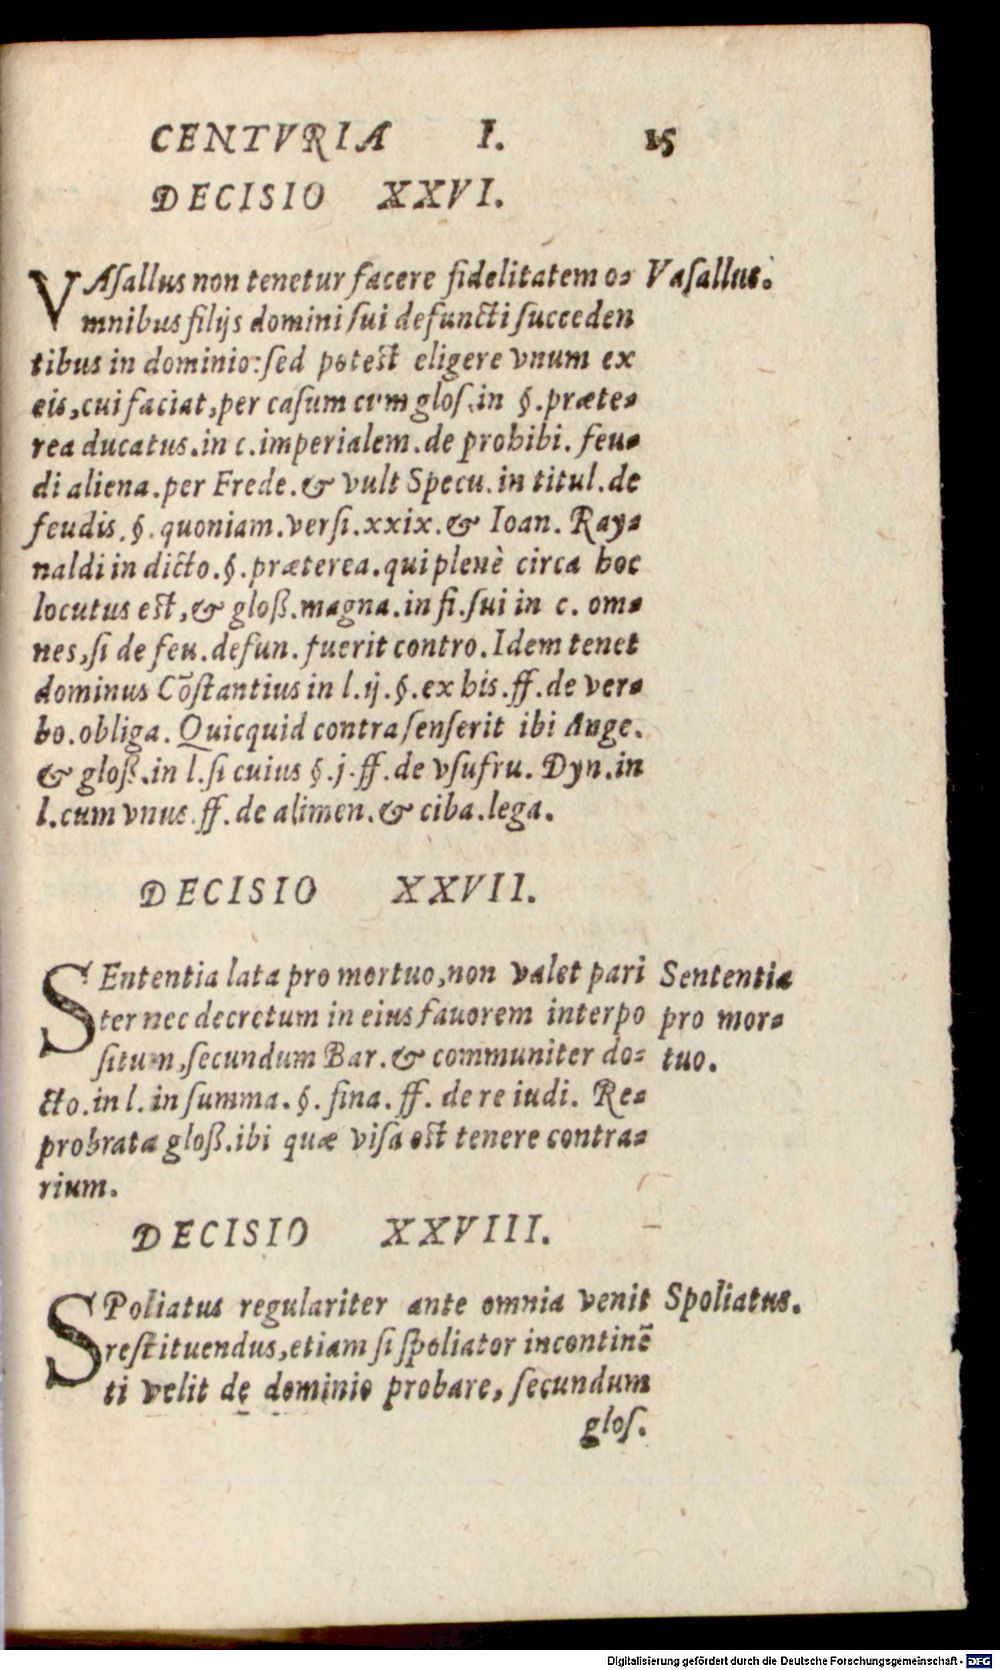 CENTVRIA I. 15
DECISIO XXVI.
VAſallus non tenetur facere fidelitatem o- Vaſallus.
mnibus filijs domini ſui defuncti ſucceden
tibus in dominio: ſed poteſt eligere vnum ex
eis, cui faciat, per caſum cvm gloſ. in §. præte-
rea ducatus. in c. imperialem. de prohibi. feu-
di aliena. per Frede. & vult Specu. in titul. de
feudis. §. quoniam. verſi. xxix. & Ioan. Ray-
naldi in dicto. §. præterea. qui plenè circa hoc
locutus eſt, & gloß. magna. in fi. ſui in c. om-
nes, ſi de feu. defun. fuerit contro. Idem tenet
dominus Cōſtantius in l. ij. §. ex his. ff. de ver-
bo. obliga. Quicquid contra ſenſerit ibi Ange.
& gloß. in l. ſi cuius §. j. ff. de vſufru. Dyn. in
l. cum vnus. ff. de alimen. & ciba. lega.
DECISIO XXVII.
SEntentia lata pro mortuo, non valet pari Sententia
ter nec decretum in eius fauorem interpo pro mor-
ſitum, ſecundum Bar. & communiter do- tuo.
cto. in l. in ſumma. §. fina. ff. de re iudi. Re-
probrata gloß. ibi quæ viſa eſt tenere contra-
rium.
DECISIO XXVIII.
SPoliatus regulariter ante omnia venit Spoliatus.
reſtituendus, etiam ſi ſpoliator incontinē
ti velit de dominio probare, ſecundum
gloſ.
Digitalisierung gefördert durch die Deutsche Forschungsgemeinschaft - DFG